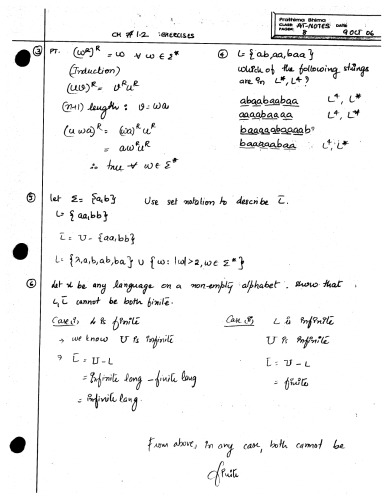 Prathima Bhima
CLASS AT-NOTES DATE
PAGE# 8 9 OCT 06
CH # 1.2 : EXERCISES
③ PT. (w^R)^R = w ∀ w ∈ Σ*
(Induction)
(uv)^R = v^R u^R
(n+1) length : v = wa
(u wa)^R = (wa)^R u^R
= a w^R u^R
∴ true ∀ w ∈ Σ*
④ L = {ab, aa, baa}
which of the following strings
are in L*, L⁴?
abaabaabaa L*, L*
aaaabaaaa L*, L*
baaaaabaaaab?
baaaaabaa L*, L*
⑤ Let Σ = {a,b} Use set notation to describe L̄.
L = {aa, bb}
L̄ = U - {aa, bb}
L = {λ, a, b, ab, ba} ∪ {w : |w| > 2, w ∈ Σ*}
⑥ Let L be any language on a non-empty alphabet. show that
L, L̄ cannot be both finite.
Case i, L is finite
→ we know U is infinite
→ L̄ = U - L
= Infinite lang - finite lang
= Infinite lang.
Case ii, L is Infinite
U is Infinite
L̄ = U - L
= finite
From above, in any case, both cannot be
finite